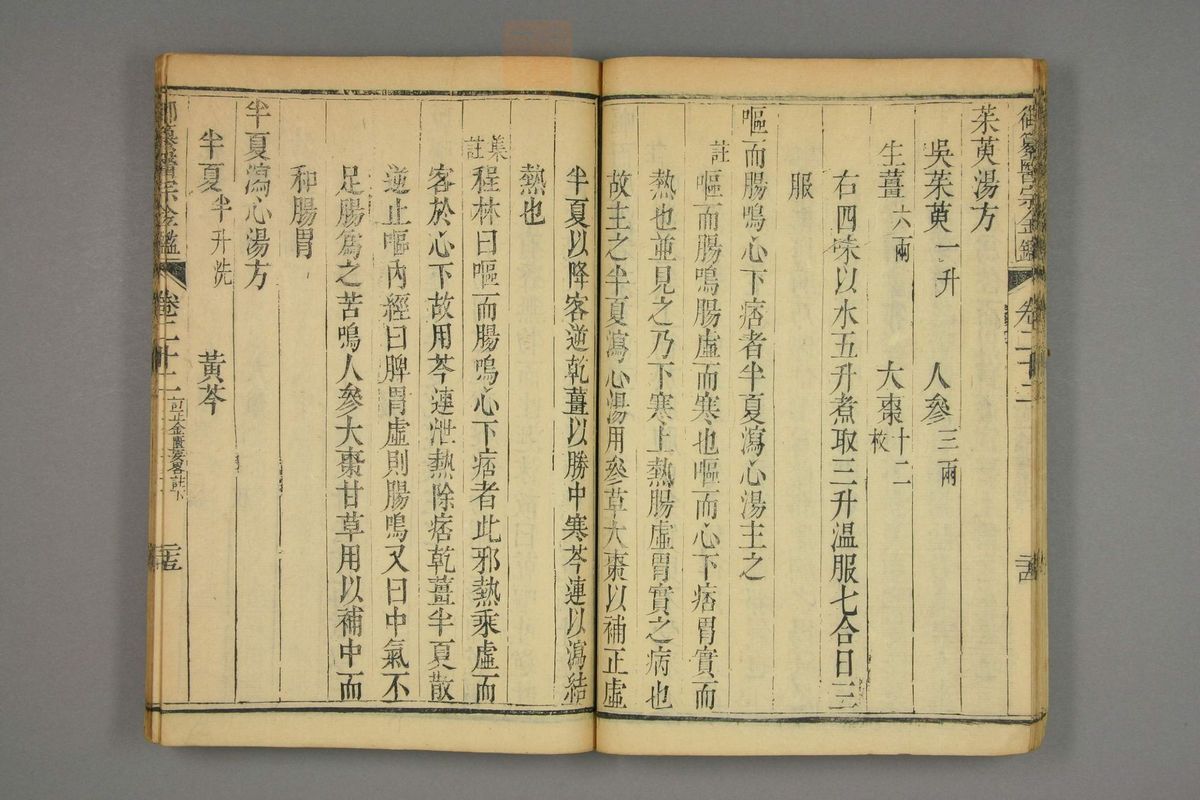 御纂醫宗金鑑 卷二十二
茱萸湯方
吳茱萸一升 人參三兩
生薑六兩 大棗十二枚
右四味以水五升煮取三升温服七合日三
服
嘔而腸鳴心下痞者半夏瀉心湯主之
註 嘔而腸鳴腸虛而寒也嘔而心下痞胃實而
熱也並見之乃下寒上熱腸虛胃實之病也
故主之半夏瀉心湯用參草大棗以補正虛
半夏以降客逆乾薑以勝中寒芩連以瀉結
熱也
集註 程林曰嘔而腸鳴心下痞者此邪熱乘虛而
客於心下故用芩連泄熱除痞乾薑半夏散
逆止嘔內經曰脾胃虛則腸鳴又曰中氣不
足腸爲之苦鳴人參大棗甘草用以補中而
和腸胃
半夏瀉心湯方
半夏半升洗 黃芩
御纂醫宗金鑑 卷二十二 訂正金匱要畧註下 二十五